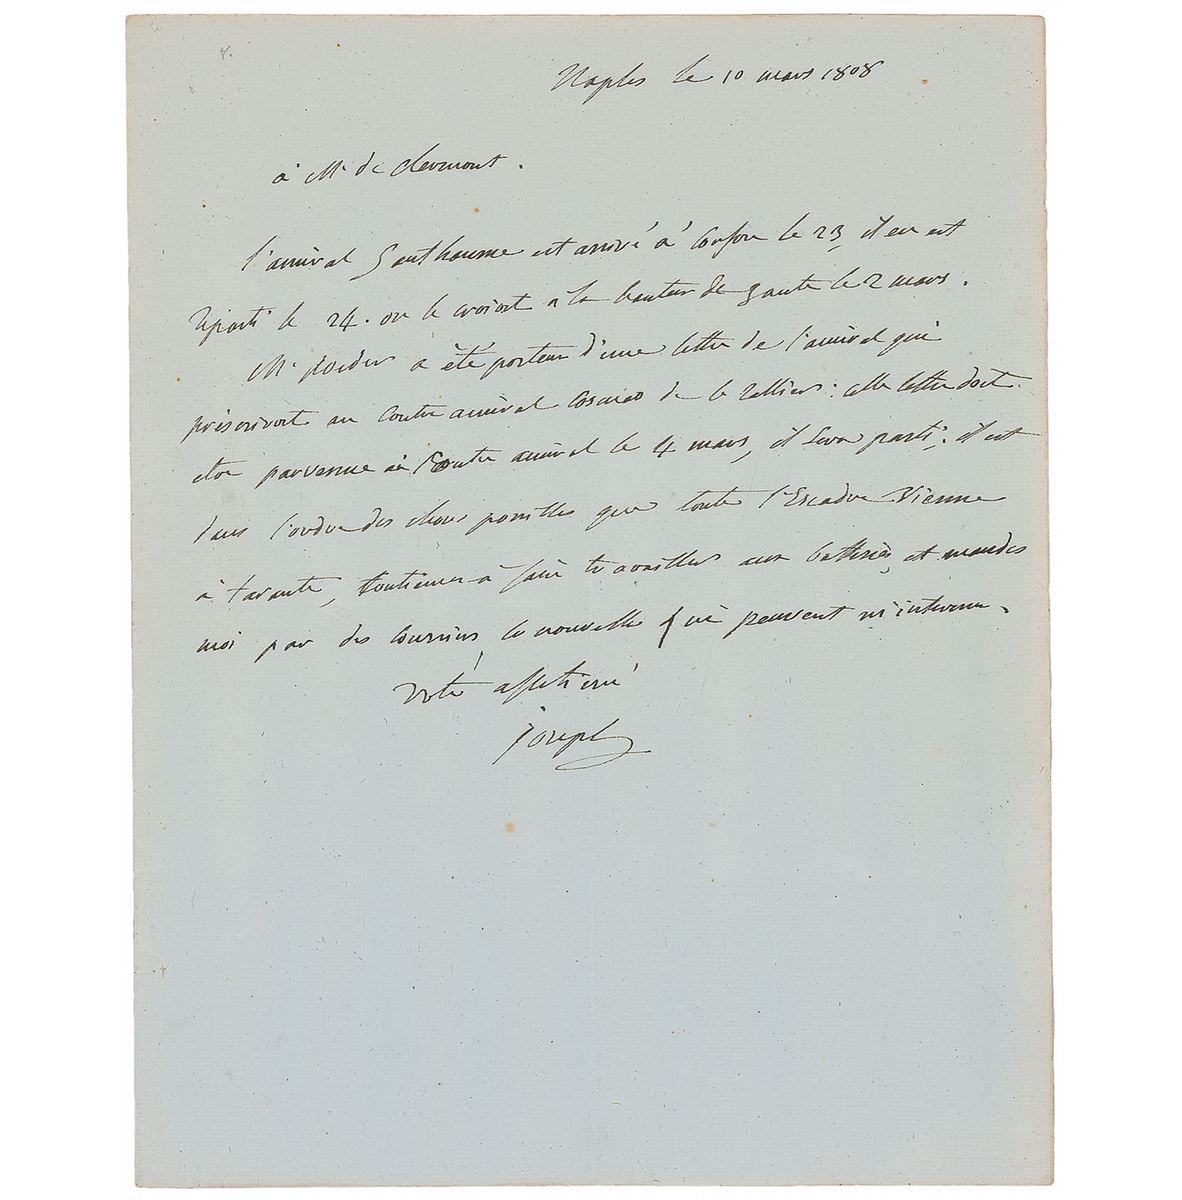 Naples le 10 mars 1808
à Mr de Clermont.
l'amiral Ganthaume est arrivé à Corfou le 23, il en est
reparti le 24. on le croioit a la hauteur de le 2 mars.
Mr a été porteur d'une lettre de l'amiral qui
préscrivoit au contre amiral Cosmao de le rallier : cette lettre doit
etre parvenue au Contre amiral le 4 mars, il sera parti ; il est
dans l'ordre des choses possibles que toute l'Escadre vienne
à tarante, continuer à faire travailler aux batteries, et mandes
moi par des courriers les nouvelles qui peuvent m'interesser.
votre affectioné
joseph